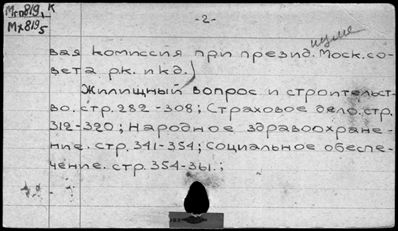 Мсп819, К
Мх819 5
-2-
вая комиссия при презид. Моск.со-
вета р.к. и кд.)
Жилищный вопрос и строительст-
во. стр. 282 -308; Страховое дело.стр.
312-320; Народное здравоохране-
ние. стр. 341-354; Социальное обеспе-
чение. стр. 354-361.;